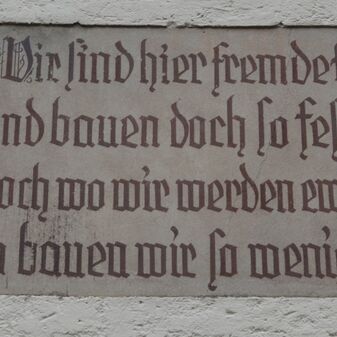 Wir sind hier fremde
nd bauen doch so fes
och wo wir werden ew
bauen wir so weni